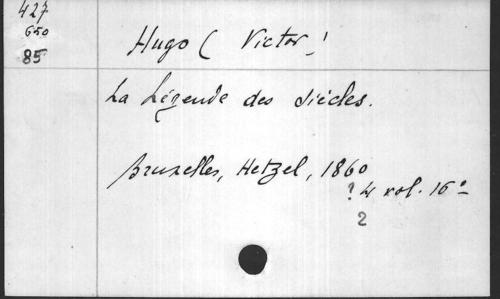 427
650
85
Hugo ( Victor !
La Légende des Siècles.
Bruxelles, Hetzel, 1860
? 4 vol. 16°
2